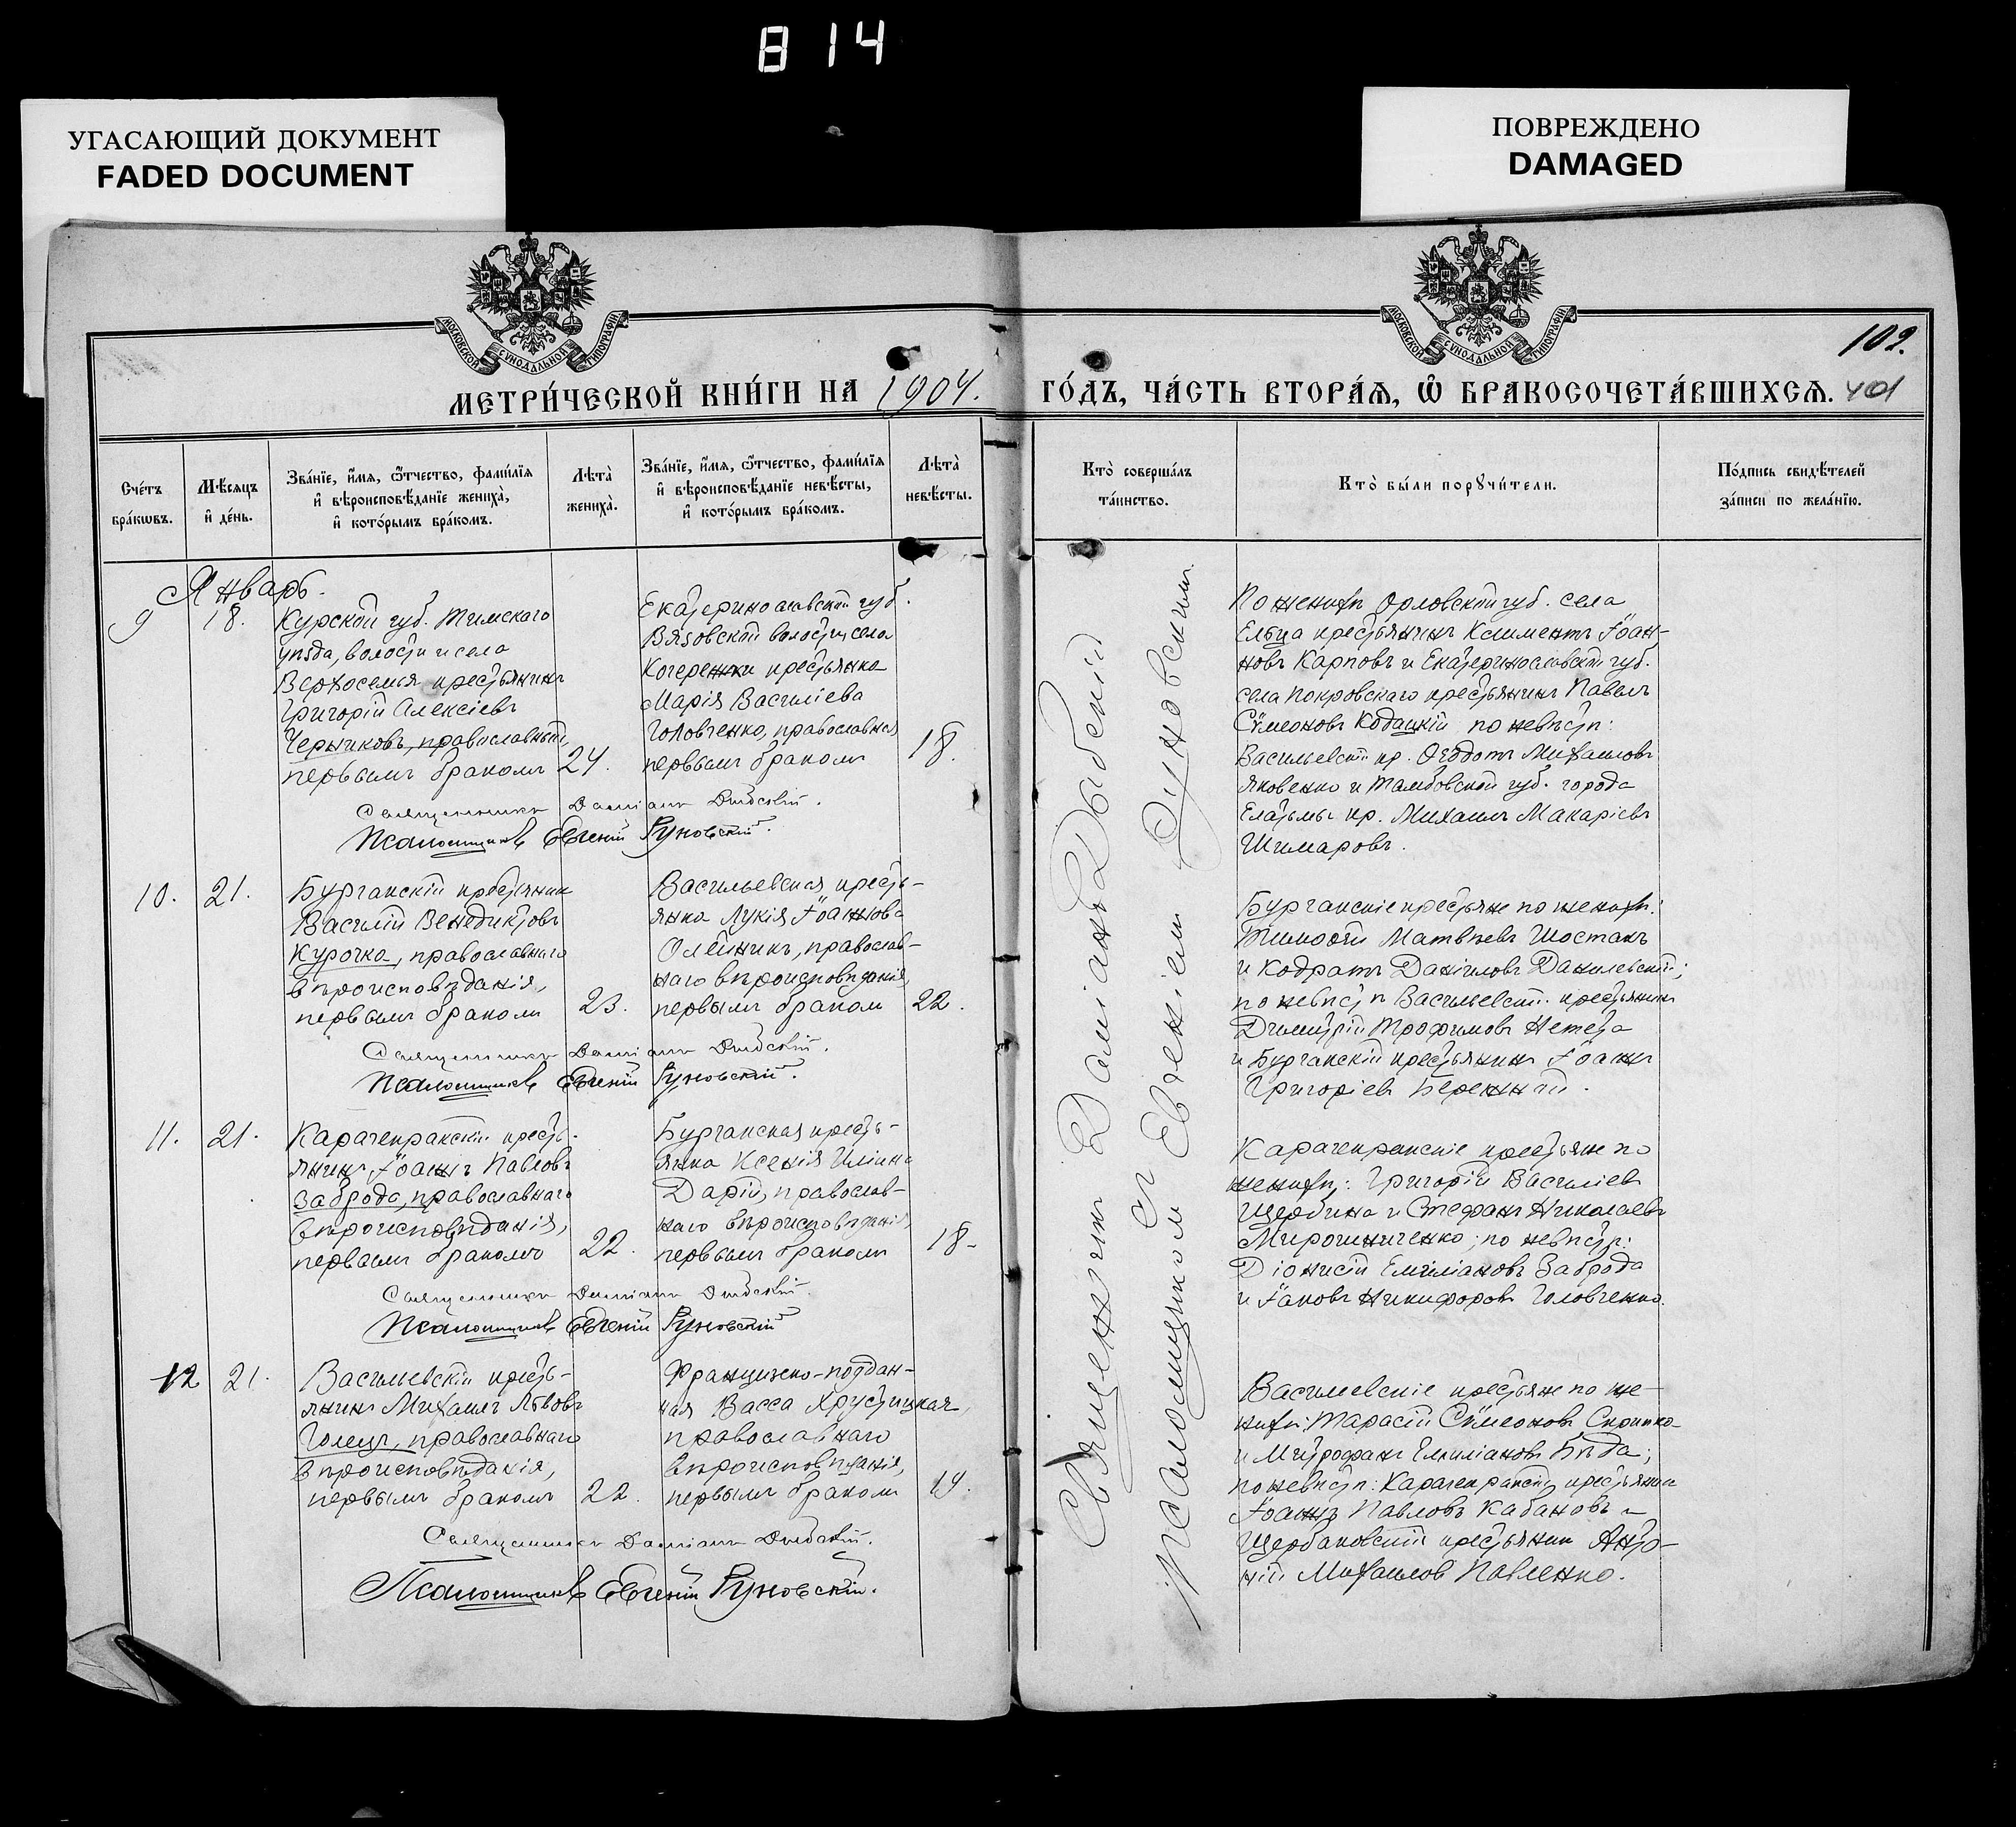 814
УГАСАЮЩИЙ ДОКУМЕНТ
FADED DOCUMENT
ПОВРЕЖДЕНО
DAMAGED
МОСКОВСКОЙ СѴНОДАЛЬНОЙ ТИПОГРАФІИ
МОСКОВСКОЙ СѴНОДАЛЬНОЙ ТИПОГРАФІИ
102.
МЕТРИ́ЧЕСКОЙ КНИ́ГИ НА 1904. ГО́ДЪ, ЧА́СТЬ ВТОРА́Ѧ, Ѡ҆ БРАКОСОЧЕТА́ВШИХСѦ. 401
Сче́тъ бра́кѡвъ.
Мѣ́сѧцъ и҆ де́нь.
Зва́нїе, и҆́мѧ, ѻ҆́тчество, фами́лїѧ
и҆ вѣроисповѣ́данїе жениха̀,
и҆ кото́рымъ бра́комъ.
Лѣта̀ жениха̀.
Зва́нїе, и҆́мѧ, ѻ҆́тчество, фами́лїѧ
и҆ вѣроисповѣ́данїе невѣ́сты,
и҆ кото́рымъ бра́комъ.
Лѣта̀ невѣ́сты.
Кто̀ соверша́лъ та́инство.
Кто̀ бы́ли порꙋчи́тели.
По́дпись свидѣ́телей за́писи по жела́нїю.
Январь.
9 18.
Курской губ. Тимскаго
уѣзда, волости и села
Верхоселья крестьянинъ
Григорій Алексіевъ
Черниковъ, православный,
первымъ бракомъ 24.
Екатеринославской губ.
Вязовской волости, села
Кочережки крестьянка
Марія Василіева
Головченко, православная
первымъ бракомъ 18.
Священникъ Даміанъ Дыбскій.
Псаломщикъ Евгеній Руновскій.
По женихѣ Орловской губ. села
Ельца крестьянинъ Климентъ Іоан-
новъ Карповъ и Екатеринославской губ.
села Покровскаго крестьянинъ Павелъ
Сѵмеоновъ Кодацкій по невѣстѣ:
Васильевскій кр. Ѳеодотъ Михаиловъ
Яковенко и Тамбовской губ. города
Елатьмы кр. Михаилъ Макаріевъ
Шимаровъ.
10. 21.
Бурчанскій крестьянинъ
Василій Венедиктовъ
Курочка, православнаго
вѣроисповѣданія,
первымъ бракомъ 23.
Васильевская кресть-
янка Лукія Іоаннова
Олейникъ, православ-
наго вѣроисповѣданія,
первымъ бракомъ 22.
Священникъ Даміанъ Дыбскій.
Псаломщикъ Евгеній Руновскій.
Бурчанскіе крестьяне по женихѣ:
Тимоѳей Матвѣевъ Шостакъ
и Кодратъ Даніиловъ Данилевскій;
по невѣстѣ Васильевскій крестьянинъ
Димитрій Трофимовъ Нетета
и Бурчанскій крестьянинъ Іоаннъ
Григоріевъ Бережный.
11. 21.
Карачекракскій кресть-
янинъ Іоаннъ Павловъ
Заброда, православнаго
вѣроисповѣданія,
первымъ бракомъ 22.
Бурчанская кресть-
янка Ксенія Иліина
Дарій, православ-
наго вѣроисповѣданія,
первымъ бракомъ 18-
Священникъ Даміанъ Дыбскій.
Псаломщикъ Евгеній Руновскій
Карачекракскіе крестьяне по
женихѣ: Григорій Василіевъ
Щербина и Стефанъ Николаевъ
Мирошниченко; по невѣстѣ:
Діонисій Емиліановъ Заброда
и Іаковъ Никифоровъ Головченко.
12 21.
Васильевскій кресть-
янинъ Михаилъ Львовъ
Голецъ, православнаго
вѣроисповѣданія,
первымъ бракомъ 22.
Французско-поддан-
ная Васса Хрустицкая,
православнаго
вѣроисповѣданія,
первымъ бракомъ 19.
Священникъ Даміанъ Дыбскій.
Псаломщикъ Евгеній Руновскій.
Васильевскіе крестьяне по же-
нихѣ: Тарасій Сѵмеоновъ Скрипка
и Митрофанъ Емиліановъ Бѣда;
по невѣстѣ: Карачекракскій крестьянинъ
Іоаннъ Павловъ Кабановъ и
Щербаковскій крестьянинъ Анто-
ній Михаиловъ Павленко.
Священникъ Даміанъ Дыбскій
Псаломщикомъ Евгеніемъ Руновскимъ.